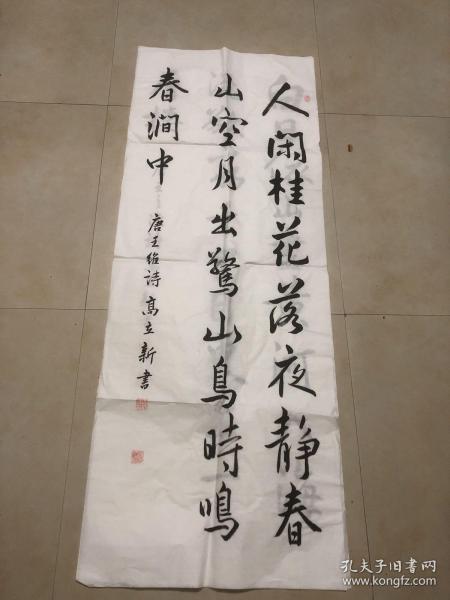 人閑桂花落夜静春
山空月出驚山鳥時鳴
春澗中
唐王維詩 高立新書
孔夫子旧书网
www.kongfz.com